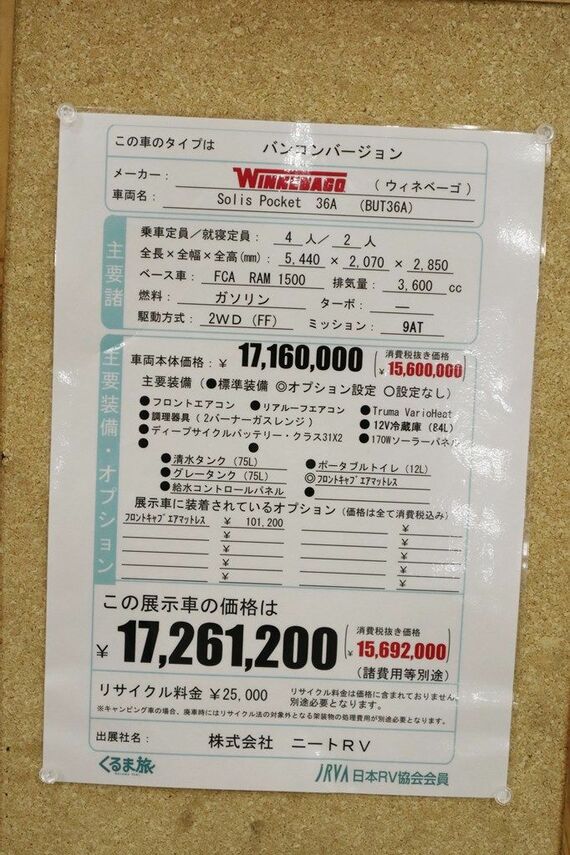 この車のタイプは バンコンバージョン
メーカー： WINNEBAGO （ウィネベーゴ）
車両名： Solis Pocket 36A (BUT36A)
主要諸
乗車定員／就寝定員： 4 人／ 2 人
全長×全幅×全高(mm)： 5,440 × 2,070 × 2,850
ベース車： FCA RAM 1500 排気量： 3,600 cc
燃料： ガソリン ターボ： ―
駆動方式： 2WD (FF) ミッション： 9AT
主要装備・オプション
車両本体価格：￥ 17,160,000 消費税抜き価格 ￥15,600,000
主要装備（●標準装備 ◎オプション設定 ○設定なし）
●フロントエアコン ●リアルーフエアコン ●Truma VarioHeat
●調理器具（2バーナーガスレンジ） ●12V冷蔵庫（84L）
●ディープサイクルバッテリー・クラス31X2 ●170Wソーラーパネル
● ●
●清水タンク（75L） ●ポータブルトイレ（12L）
●グレータンク（75L） ◎フロントキャブエアマットレス
●給水コントロールパネル ●
展示車に装着されているオプション（価格は全て消費税込み）
フロントキャブエアマットレス ￥ 101,200 ￥
￥ ￥
￥ ￥
￥ ￥
￥ ￥
この展示車の価格は
￥17,261,200 消費税抜き価格 ￥15,692,000
（諸費用等別途）
リサイクル料金 ￥25,000 リサイクル料金は価格に含まれておりません。
別途必要となります。
※キャンピング車の場合、廃車時にはリサイクル法の対象外となる架装物の処理費用が別途必要となります。
出展社名： 株式会社 ニートRV
くるま旅 JRVA 日本RV協会会員